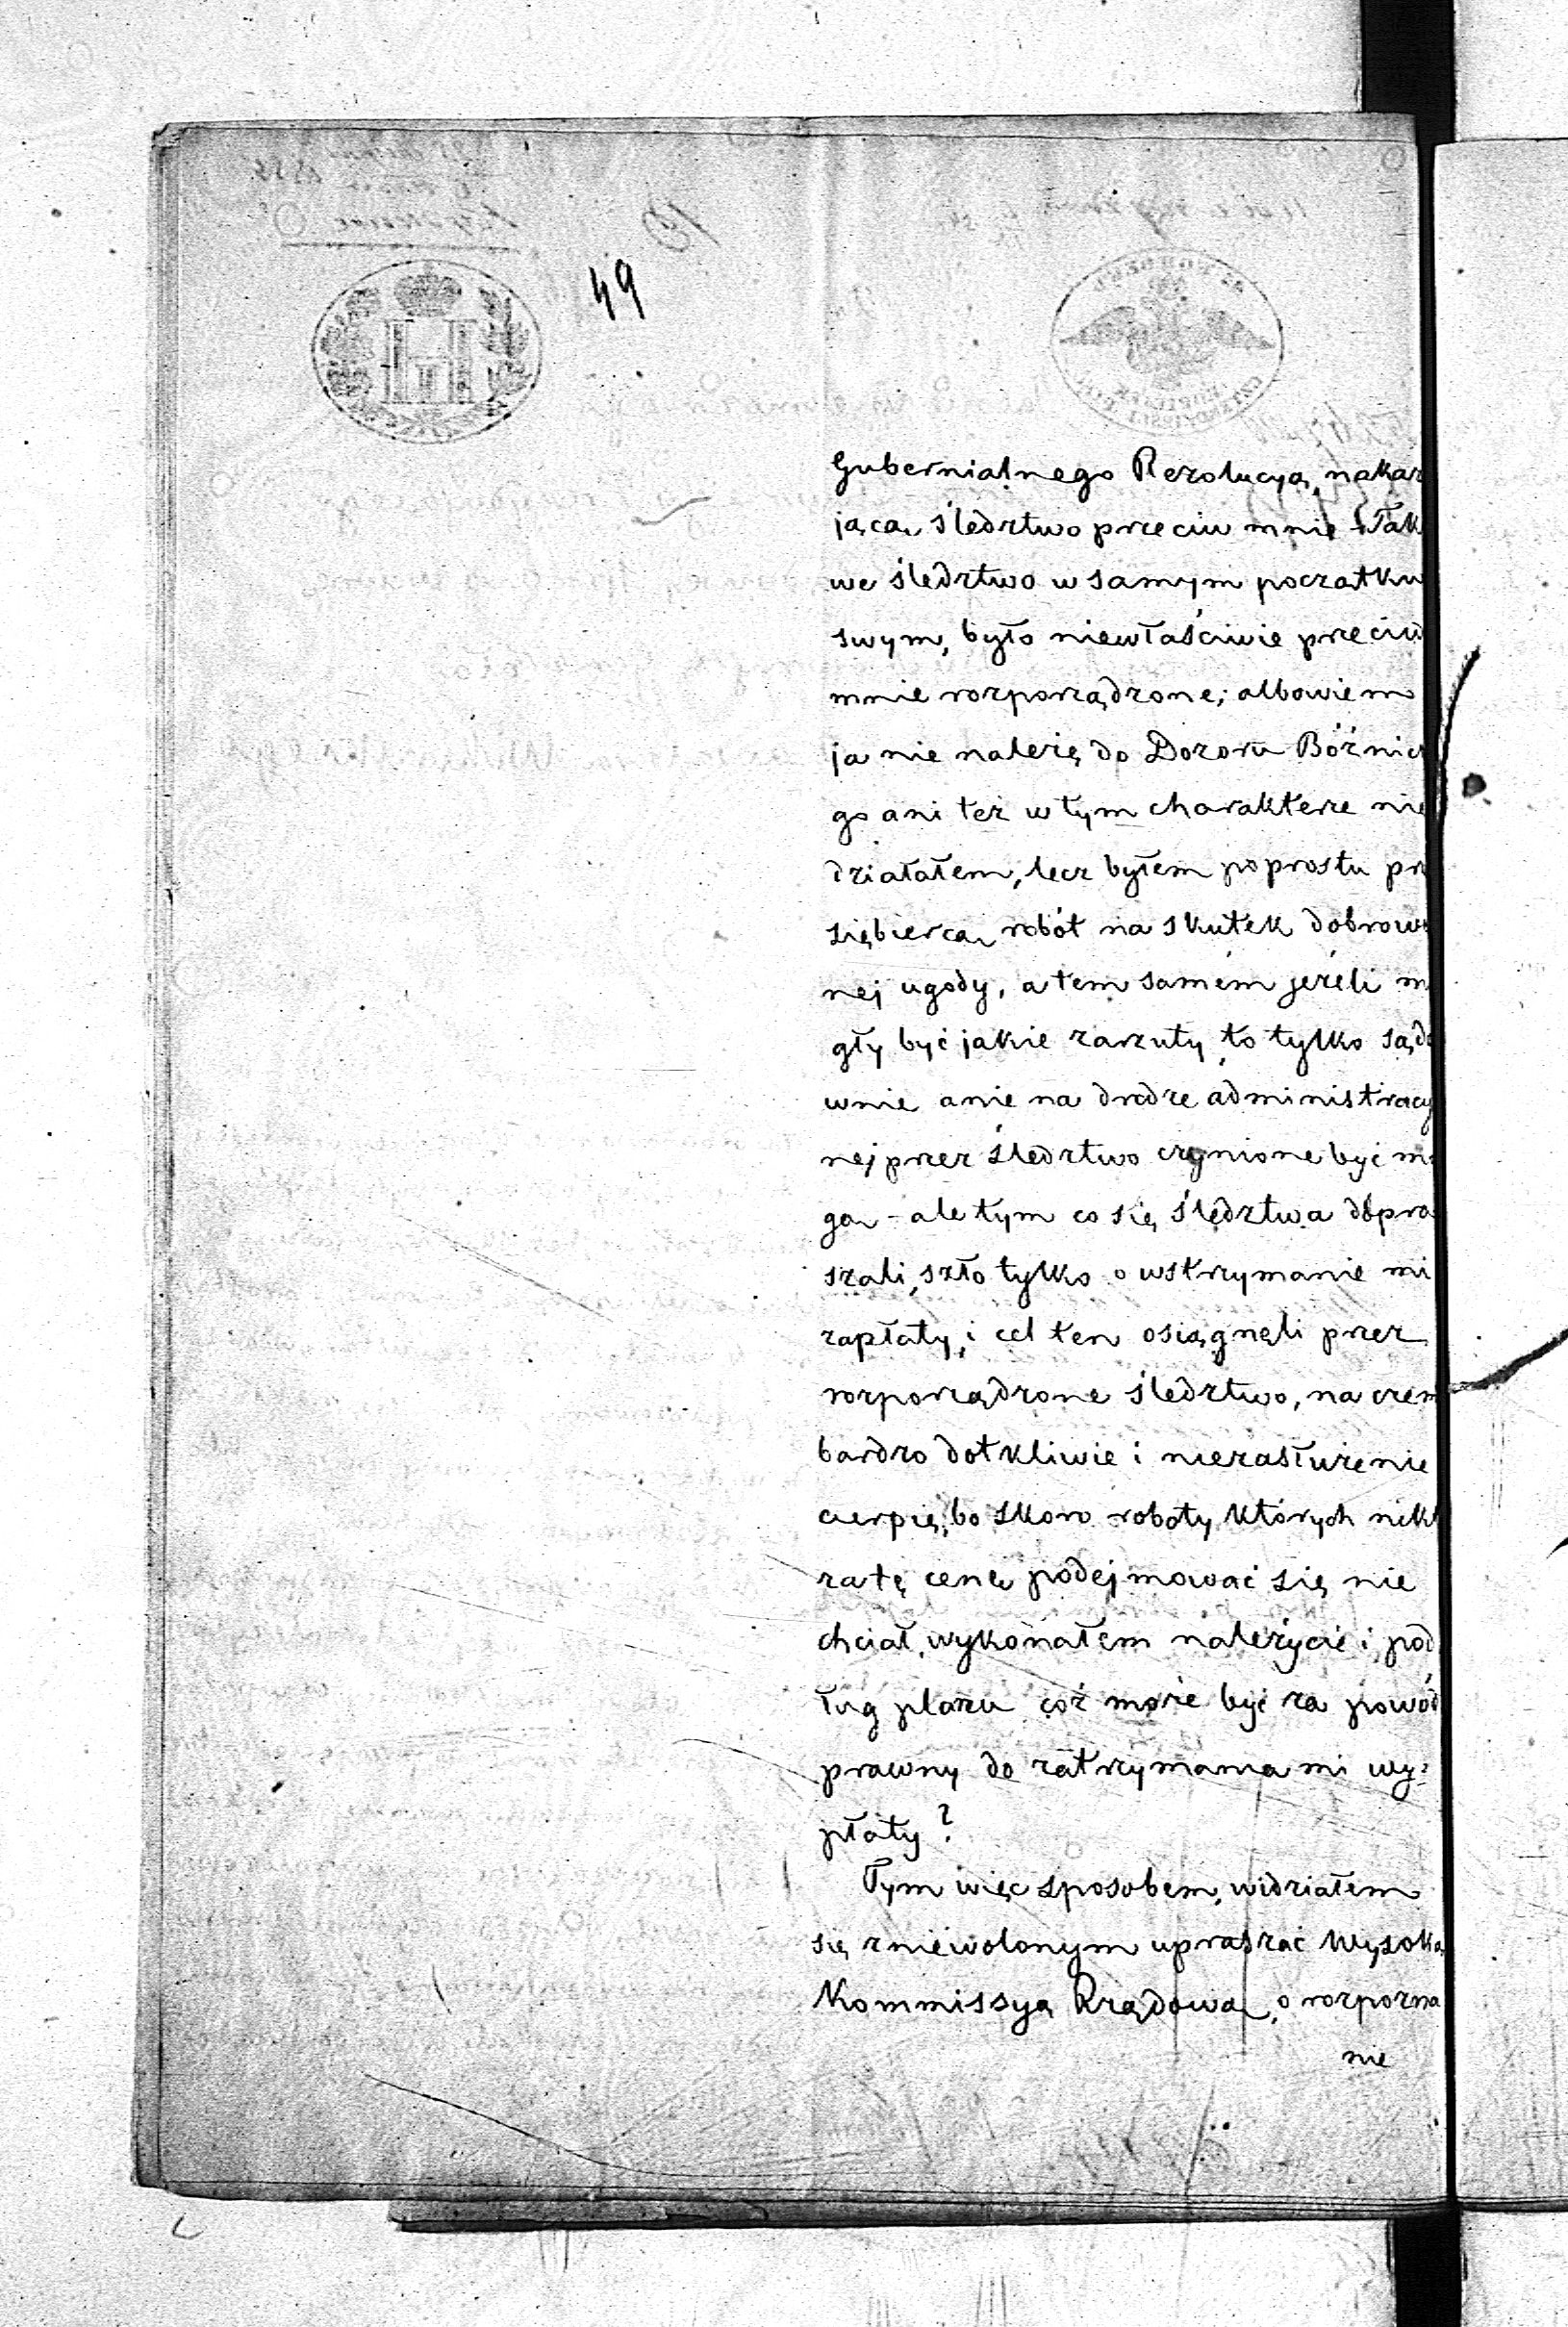 49
Gubernialnego Rezolucyą, nakaz
jącą śledztwo przeciw mnie – Tak
we śledztwo w samym początku
swym, było niewłaściwie przeciw
mnie rozporządzone; albowiem
ja nie należę do Dozoru Bóżnic
go ani też w tym charakterze nie
działałem, lecz byłem poprostu prz
siębiercą robót na skutek dobrow
nej ugody, a tem samém jeżeli m
gły być jakie zarzuty, to tylko sądo
wnie a nie na drodze administracy
nej przez śledztwo czynione być mo
gą – ale tym co się śledztwa dopra
szali, szło tylko o wstrzymanie mi
zapłaty, i cel ten osiągnęli przez
rozporządzone śledztwo, na czem
bardzo dotkliwie i niezasłużenie
cierpię, bo skoro roboty których nikt
za tę cenę podejmować się nie
chciał, wykonałem należycie i pod
ług planu cóż może być za powód
prawny do zatrzymania mi wy-
płaty?
Tym więc sposobem, widziałem
się zniewolonym upraszać Wysoką
Kommissyą Rządową, o rozpozna
nie